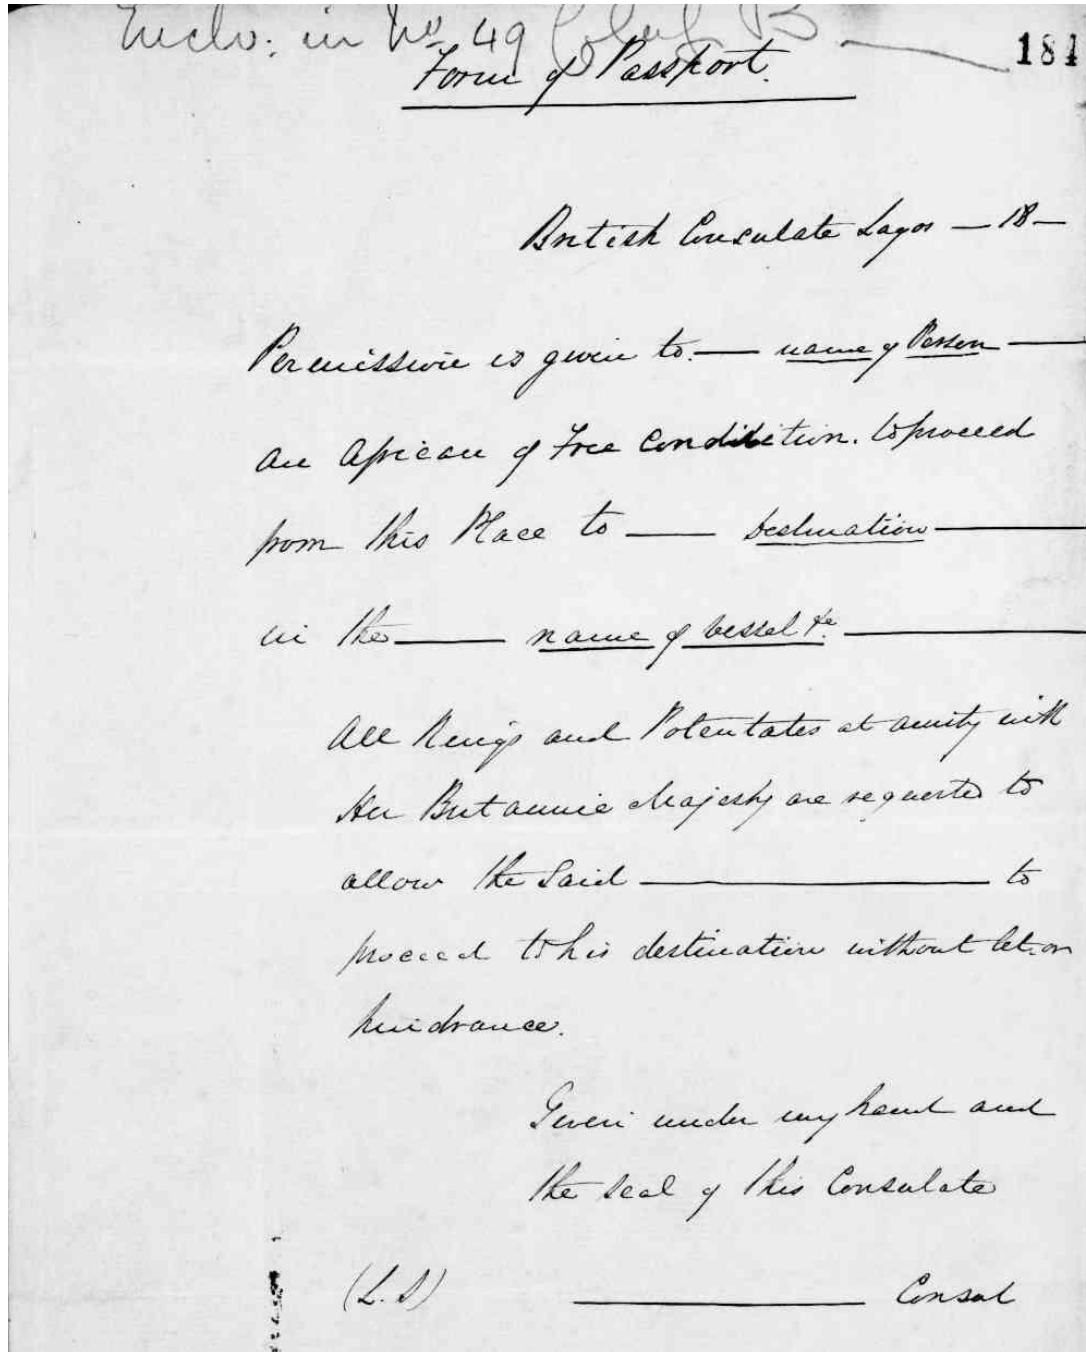 Enclo: in No. 49
184
Form of Passport.
British Consulate Lagos — 18 —
Permission is given to. — name of Person —
An African of Free Condition. to proceed
from this Place to — Destination —
in the — name of vessel &c. —
All Kings and Potentates at amity with
Her Britannic Majesty are requested to
allow the Said — to
proceed to his destination without let or
hindrance.
Given under my hand and
the seal of this Consulate
(L.S) — Consul